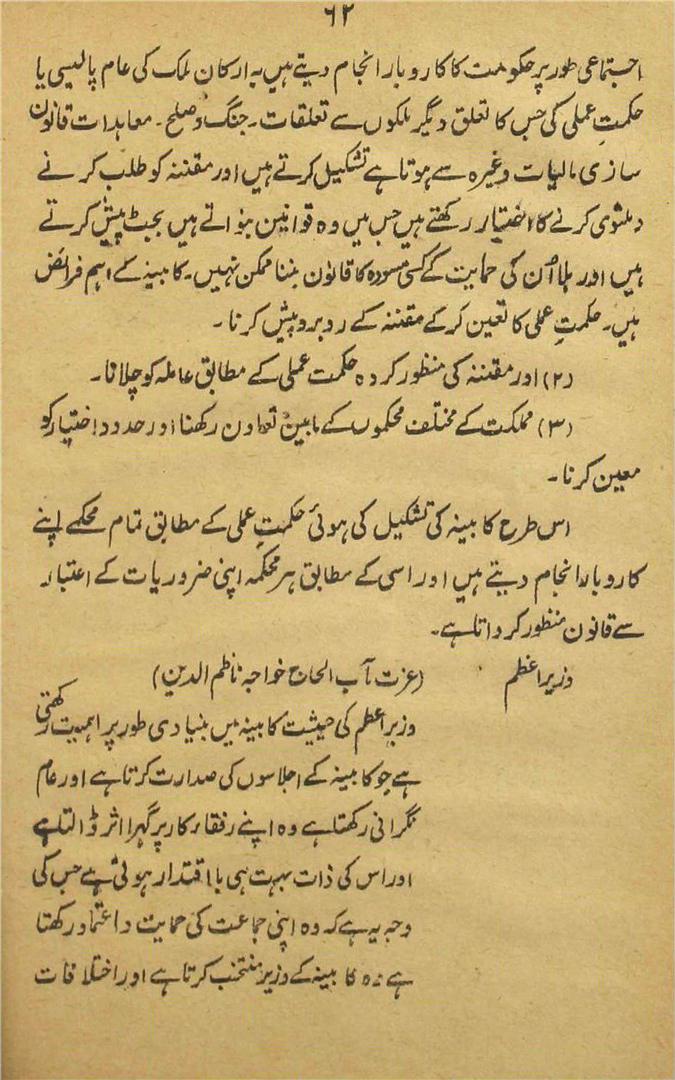 ٦٢
اجتماعی طور پر حکومت کا کاروبار انجام دیتے ہیں یہ ارکان ملک کی عام پالیسی یا
حکمتِ عملی کی جس کا تعلق دیگر ملکوں سے تعلقات۔ جنگ و صلح۔ معاہدات قانون
سازی مالیات وغیرہ سے ہوتا ہے تشکیل کرتے ہیں اور مقننہ کو طلب کرنے
و ملتوی کرنے کا اختیار رکھتے ہیں جس میں وہ قوانین بنواتے ہیں بجٹ پیش کرتے
ہیں اور بلا اُن کی حمایت کے کسی مسودہ کا قانون بننا ممکن نہیں۔ کابینہ کے اہم فرائض
ہیں۔ حکمتِ عملی کا تعین کر کے مقننہ کے روبرو پیش کرنا۔
(۲) اور مقننہ کی منظور کردہ حکمت عملی کے مطابق عاملہ کو چلانا۔
(۳) مملکت کے مختلف محکموں کے مابین تعاون رکھنا اور حدود اختیار کو
معین کرنا۔
اس طرح کابینہ کی تشکیل کی ہوئی حکمتِ عملی کے مطابق تمام محکمے اپنے
کاروبار انجام دیتے ہیں اور اسی کے مطابق ہر محکمہ اپنی ضروریات کے اعتبار
سے قانون منظور کرواتا ہے۔
وزیر اعظم (عزت آب الحاج خواجہ ناظم الدین)
وزیر اعظم کی حیثیت کابینہ میں بنیادی طور پر اہمیت رکھتی
ہے جو کابینہ کے اجلاسوں کی صدارت کرتا ہے اور عام
نگرانی رکھتا ہے وہ اپنے رفقار کار پر گہرا اثر ڈالتا ہے
اور اس کی ذات بہت ہی با اقتدار ہوئی ہے جس کی
وجہ یہ ہے کہ وہ اپنی جماعت کی حمایت و اعتماد رکھتا
ہے وہ کابینہ کے وزیر منتخب کرتا ہے اور اختلافات